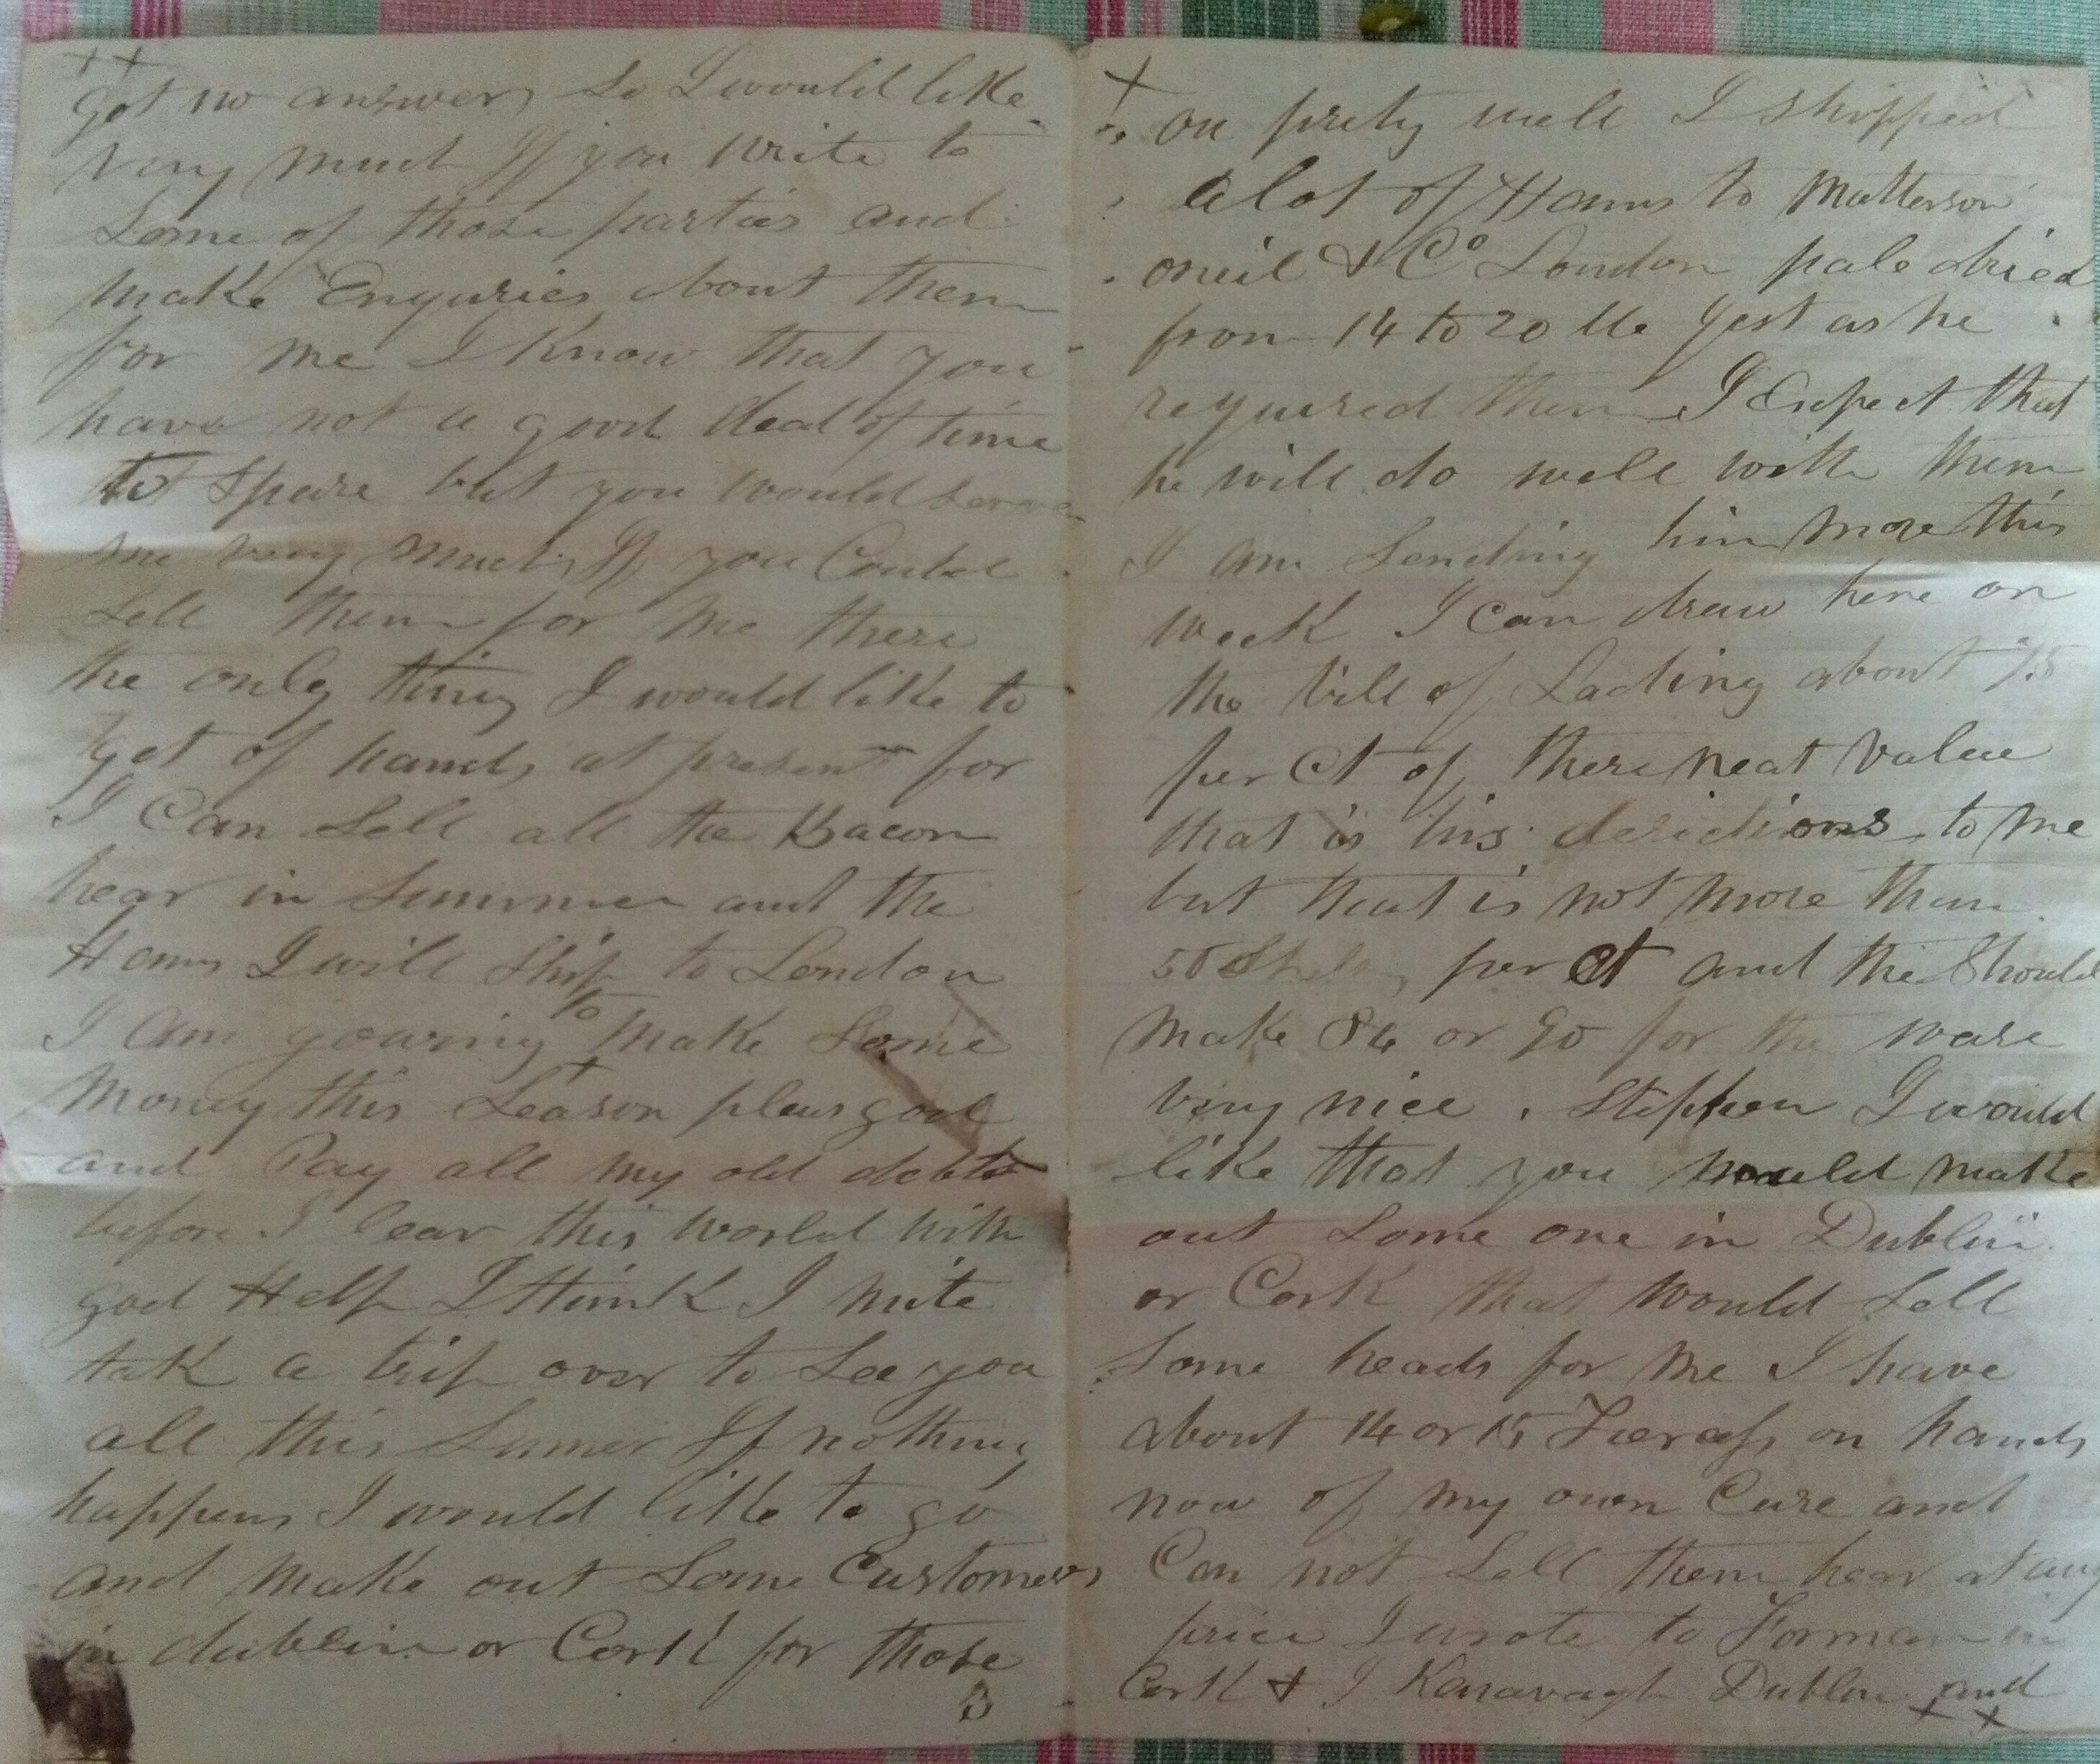 ++
got no answer so I would like
very much If you write to
Some of those parties and
make Enquries about them
for me I know that you
have not a good deal of time
to Spare but you would serve
me very much If you Could
Sell them for me there
the only thing I would like to
get of hands at present for
I Can Sell all the Bacon
hear in Summer and the
Hams I will Ship to London
I am gowing to make Some
Money this Season pleas god
and Pay all my old debts
before I leav this world with
god Help I think I mite
tak a trip over to See you
all this Sumer If nothing
happens I would like to go
and make out Some Customers
in dublin or Cork for those
3
+
on prety well I Shipped
a lot of Hams to Matterson
oneil & Co London pale dried
from 14 to 20 lb Jest as he
required them I Expect that
he will do well with them
I am Sending him more this
week I Can draw here on
the bill of Lading about 75
per Ct of there neat value
that is his to me
but that is not more than
50 per Ct and the Should
make 84 or 90 for the ware
very nice . Stephen I would
like that you would make
out Some one in Dublin
or Cork that would Sell
Some heads for me I have
about 14 or 15 on hands
now of my own Cure and
Can not Sell them hear at any
price I wrote to Forman in
Cork & J Kanavagh Dublin and
++